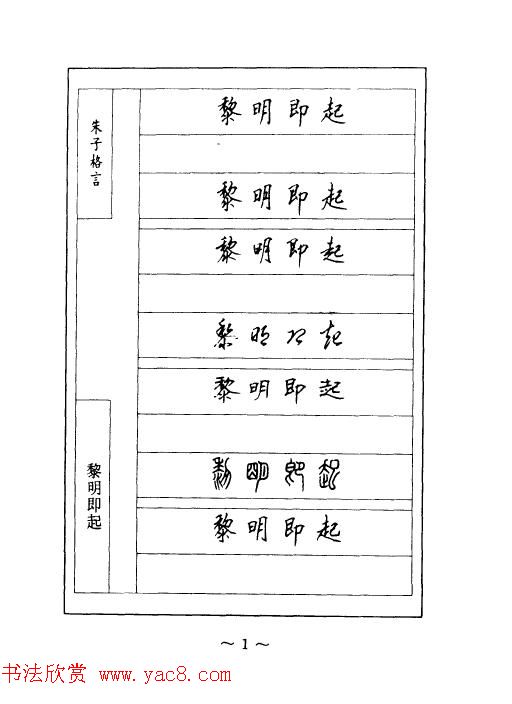 朱子格言
黎明即起
黎明即起
黎明即起
黎明即起
黎明即起
黎明即起
黎明即起
黎明即起
~ 1 ~
书法欣赏 www.yac8.com